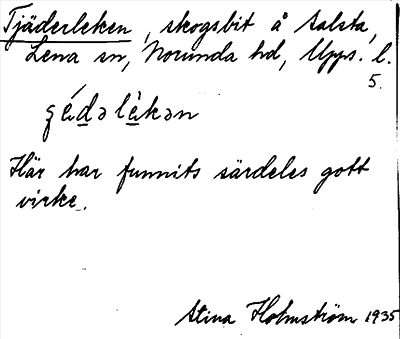 Tjäderleken, skogsbit å Salsta,
Lena sn, Norunda hd, Upps. l.
5.
ʒédəlèkən
Här har funnits särdeles gott
virke.
Stina Holmström 1935